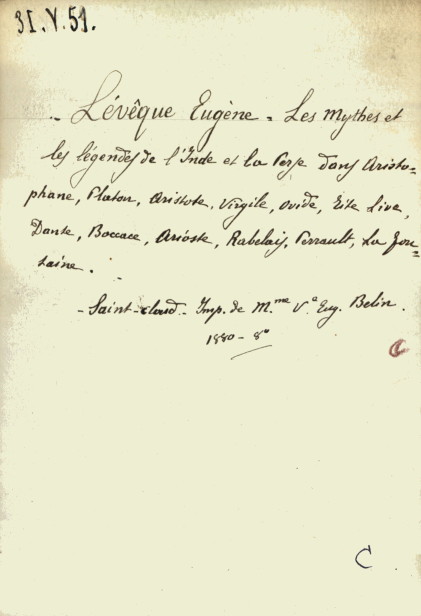 31.V.51.
- Lévêque Eugène - Les Mythes et
les légendes de l'Inde et la Perse dans Aristo-
phane, Platon, Aristote, Virgile, Ovide, Tite Live,
Dante, Boccace, Arioste, Rabelais, Perrault, La Fon-
taine.
- Saint-Cloud - Imp. de M.me V.e Eug. Belin.
1880 - 8º
C
C